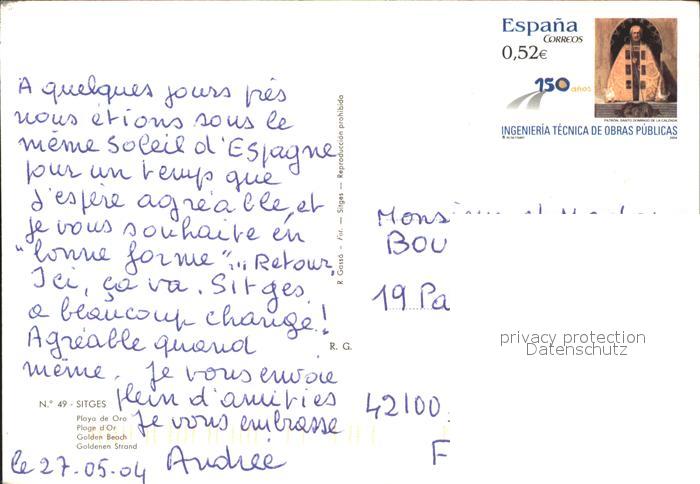 España
CORREOS
0,52€
150 años
PATRÓN, SANTO DOMINGO DE LA CALZADA
INGENIERÍA TÉCNICA DE OBRAS PÚBLICAS
2004
A quelques jours près
nous étions sous le
même Soleil d'Espagne
pour un temps que
j'espère agréable, et
je vous souhaite en
"bonne forme"... Retour,
Ici, ça va. Sitges
a beaucoup changé!
Agréable quand
même. Je vous envoie
plein d'amitiés
Je vous embrasse
le 27.05.04 Andrée
R Gassó - Fot. - Sitges - Reproducción prohibida
R. G.
N.° 49 - SITGES
Playa de Oro
Plage d'Or
Golden Beach
Goldenen Strand
Monsieur et
BOU
19 Pa
42100
F
privacy protection
Datenschutz